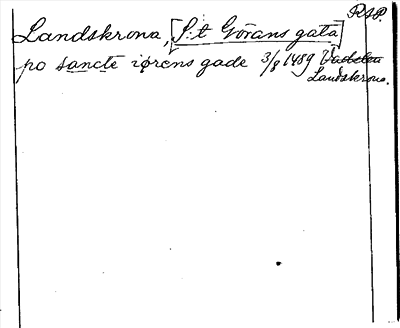 R.S.P.
Landskrona, [S:t Görans gata]
po sancte iørens gade 3/8 1489 Vadstena
Landskrona.